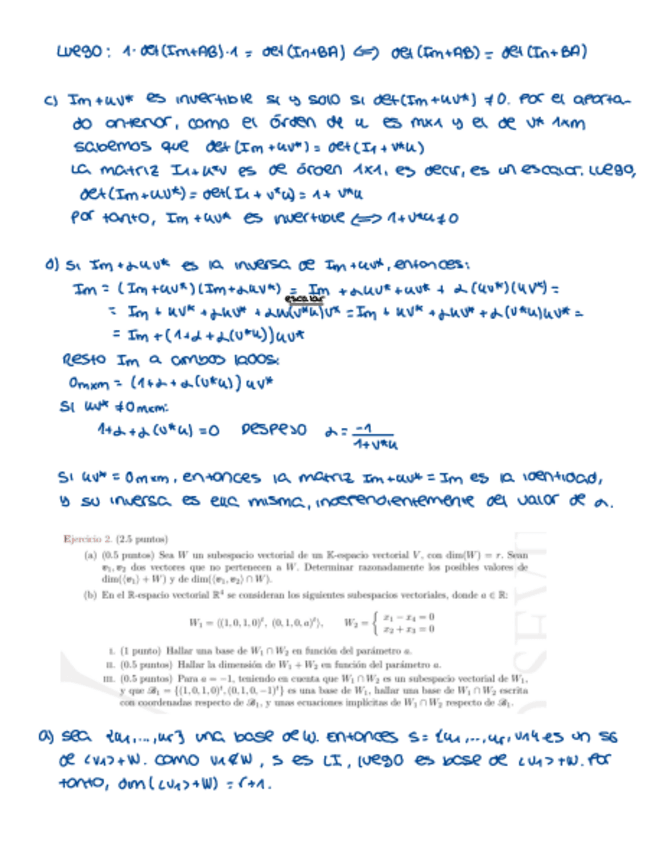 Luego: 1·det(Im+AB)·1 = det(In+BA) ⟺ det(Im+AB) = det(In+BA)
c) Im+uv* es invertible si y solo si det(Im+uv*) ≠0. Por el aparta-
do anterior, como el órden de u es mx1 y el de v* 1xm
sabemos que det(Im+uv*) = det(I1+v*u)
La matriz I1+u*v es de órden 1x1, es decir, es un escalar. Luego,
det(Im+uv*) = det(I1+v*u) = 1+v*u
Por tanto, Im+uv* es invertible ⟺ 1+v*u≠0
d) Si Im+αuv* es la inversa de Im+uv*, entonces:
Im = (Im+uv*)(Im+αuv*) = Im + αuv* + uv* + α(uv*)(uv*) =
escalar
= Im + uv* + αuv* + αu(v*u)v* = Im + uv* + αuv* + α(v*u)uv* =
= Im + (1+α+α(v*u))uv*
Resto Im a ambos lados:
0mxm = (1+α+α(v*u)) uv*
Si uv* ≠0mxm:
1+α+α(v*u) =0 Despejo α = -1/1+v*u
Si uv* = 0mxm, entonces la matriz Im+uv* = Im es la identidad,
y su inversa es ella misma, independientemente del valor de α.
Ejercicio 2. (2.5 puntos)
(a) (0.5 puntos) Sea W un subespacio vectorial de un K-espacio vectorial V, con dim(W) = r. Sean
v1, v2 dos vectores que no pertenecen a W. Determinar razonadamente los posibles valores de
dim(⟨v1⟩ + W) y de dim(⟨v1, v2⟩ ∩ W).
(b) En el ℝ-espacio vectorial ℝ⁴ se consideran los siguientes subespacios vectoriales, donde a ∈ ℝ:
W1 = ⟨(1, 0, 1, 0)ᵗ, (0, 1, 0, a)ᵗ⟩, W2 = { x1 − x4 = 0
x2 + x3 = 0
I. (1 punto) Hallar una base de W1 ∩ W2 en función del parámetro a.
II. (0.5 puntos) Hallar la dimensión de W1 + W2 en función del parámetro a.
III. (0.5 puntos) Para a = −1, teniendo en cuenta que W1 ∩ W2 es un subespacio vectorial de W1,
y que ℬ1 = {(1, 0, 1, 0)ᵗ, (0, 1, 0, −1)ᵗ} es una base de W1, hallar una base de W1 ∩ W2 escrita
con coordenadas respecto de ℬ1, y unas ecuaciones implícitas de W1 ∩ W2 respecto de ℬ1.
a) Sea {u1,...,ur} una base de W. Entonces S= {u1,...,ur,v1} es un SG
de <v1>+W. Como v1∉W, S es LI, luego es base de <v1>+W. Por
tanto, dim(<v1>+W) = r+1.